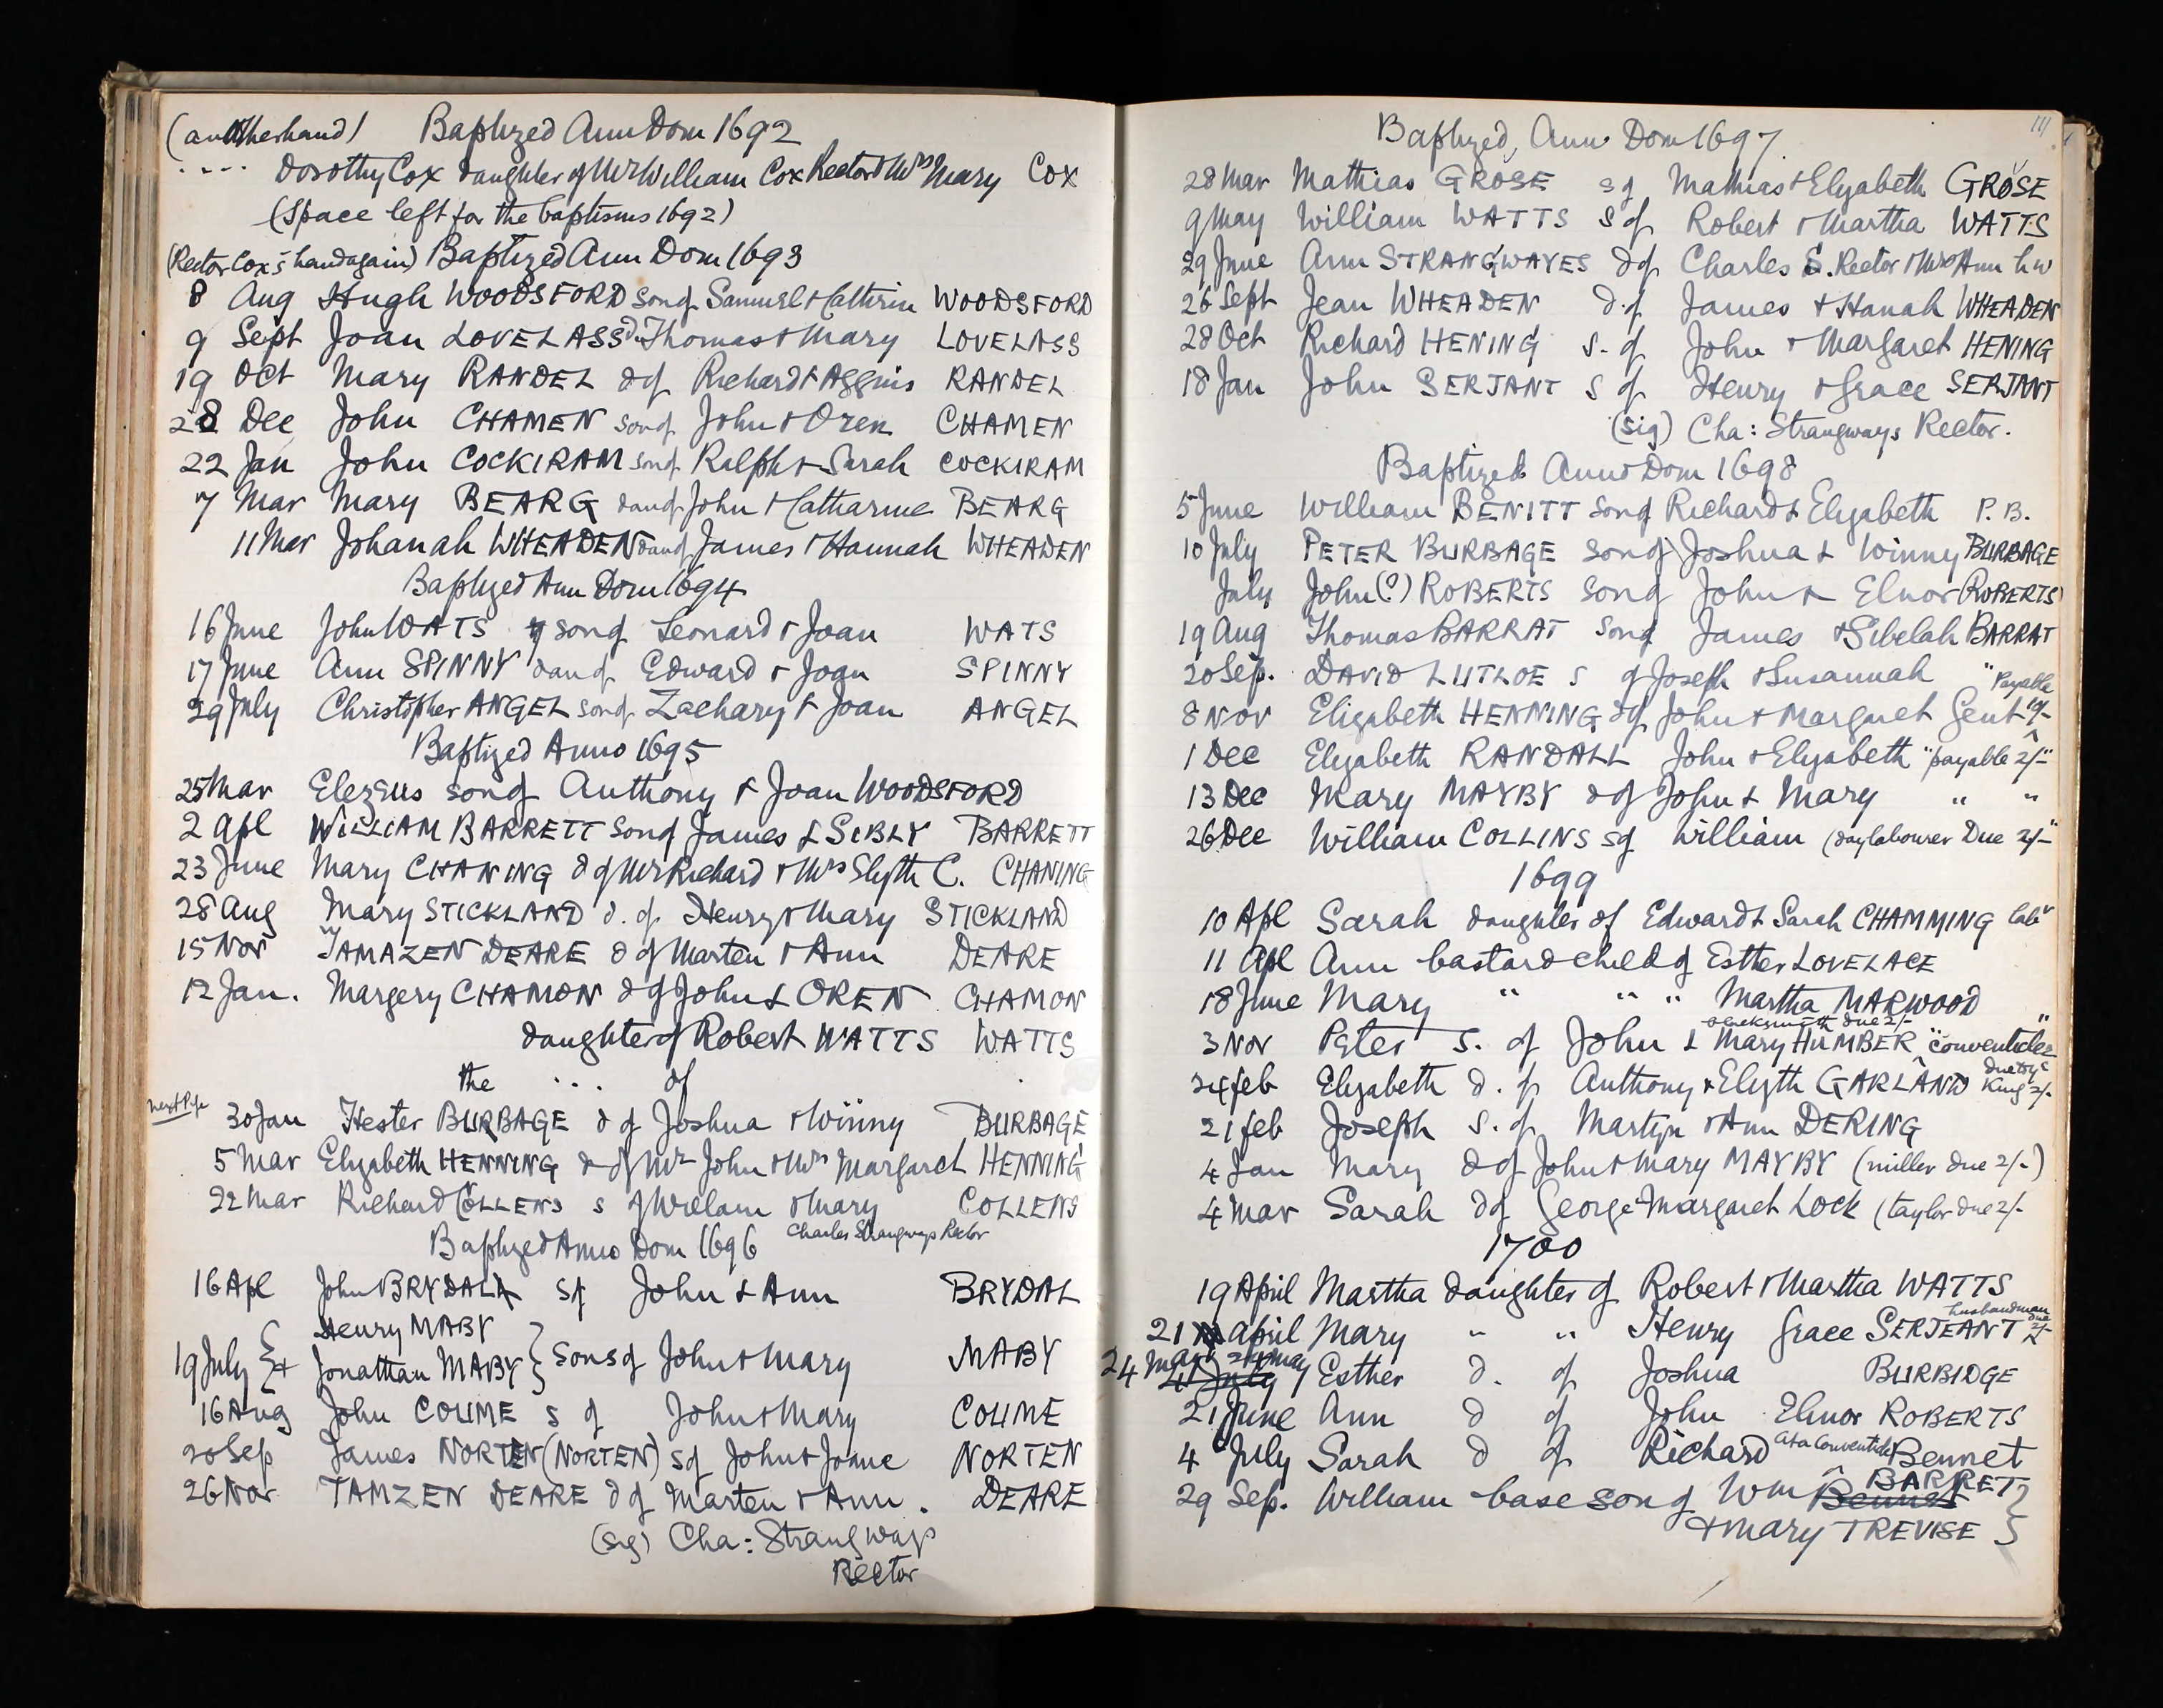 (anotherhand) Baptized Ann Dom 1692
.... Dorothy Cox daughter of Mr William Cox Rector & Mrs Mary Cox
(Space left for the baptisms 1692)
(Rector Cox's hand again) Baptized Ann Dom 1693
8 Aug Hugh WOODSFORD son of Samuel & Cathrin WOODSFORD
9 Sept Joan LOVELASS d of Thomas & Mary LOVELASS
19 Oct Mary RANDEL d of Richard & Aggnis RANDEL
28 Dec John CHAMEN son of John & Oren CHAMEN
22 Jan John COCKIRAM son of Ralph & Sarah COCKIRAM
7 Mar Mary BEARG dau of John & Catharine BEARG
11 Mar Johanah WHEADEN dau of James & Hannah WHEADEN
Baptized Ann Dom 1694
16 June John WATS son of Leonard & Joan WATS
17 June Ann SPINNY dau of Edward & Joan SPINNY
29 July Christopher ANGEL son of Zachary & Joan ANGEL
Baptized Anno 1695
25 Mar Elezeus son of Anthony & Joan WOODSFORD
2 Apl WILLIAM BARRETT son of James & SIBLY BARRETT
23 June Mary CHANING d of Mr Richard & Mrs Elyth C. CHANING
28 Aug Mary STICKLAND d. of Henry & Mary STICKLAND
15 Nov TAMAZEN DEARE d of Marten & Ann DEARE
12 Jan. Margery CHAMON d of John & OREN CHAMON
daughter of Robert WATTS WATTS
the ... of
next Pge 30 Jan Hester BURBAGE d of Joshua & Winny BURBAGE
5 Mar Elyzabeth HENNING d of Mr John & Mrs Margaret HENNING
22 Mar Richard COLLENS s of Willam & Mary COLLENS
Charles Strangways Rector
Baptized Anno Dom 1696
16 Apl John BRYDALL s of John & Ann BRYDAL
Henry MABY
19 July { & Jonathan MABY } Sons of John & Mary MABY
16 Aug John COUME s of John & Mary COUME
20 Sep James NORTEN (NORTEN) s of John & Joane NORTEN
26 Nov TAMZEN DEARE d of Marten & Ann. DEARE
(sig) Cha: Strangways
Rector
111
Baptized, Anno Dom 1697
28 Mar Mathias GROSE s of Mathias & Elyzabeth GROSE
9 May William WATTS S of Robert & Martha WATTS
29 June Ann STRANGWAYES d of Charles S. Rector & Mrs Ann h w
26 Sept Jean WHEADEN d. of James & Hanah WHEADEN
28 Oct Richard HENING s. of John & Margaret HENING
18 Jan John SERJANT s of Henry & Grace SERJANT
(sig) Cha: Strangways Rector.
Baptized Anno Dom 1698
5 June William BENITT son of Richard & Elyzabeth P. B.
10 July PETER BURBAGE son of Joshua & Winny BURBAGE
July John (?) ROBERTS son of John & Elnor (ROBERTS)
19 Aug Thomas BARRAT son of James & Sibelah BARRAT
20 Sep. DAVID LUTLOE s of Joseph & Susannah "
8 Nov Elizabeth HENNING d of John & Margaret Gent "Payable 10/-
1 Dec Elyzabeth RANDALL John & Elyzabeth "payable 2/-"
13 Dec Mary MAYBY d of John & Mary " "
26 Dec William COLLINS s of William (daylabourer Due 2/-"
1699
10 Apl Sarah daughter of Edward & Sarah CHAMMING labr
11 Apl Ann bastard child of Esther LOVELACE
18 June Mary " " " Martha MARWOOD
blacksmith due 2/-
3 Nov Peter S. of John & Mary HUMBER "conventicle"
24 feb Elyzabeth d. of Anthony & Elyth GARLAND due to ye King 2/-
21 feb Joseph S. of Martyn & Ann DERING
4 Jan Mary d of John & Mary MAYBY (miller due 2/-)
4 Mar Sarah d of George Margaret Lock (taylor due 2/-
1700
19 April Martha daughter of Robert & Martha WATTS
21 April Mary " " Henry Grace SERJEANT husbandman due 2/-
24 May 24 May Esther d. of Joshua BURBIDGE
21 June Ann d of John Elinor ROBERTS
4 July Sarah d of Richard at a Conventicle Bennet
29 Sep. William base son of Wm Bennet BARRET }
& Mary TREVISE }